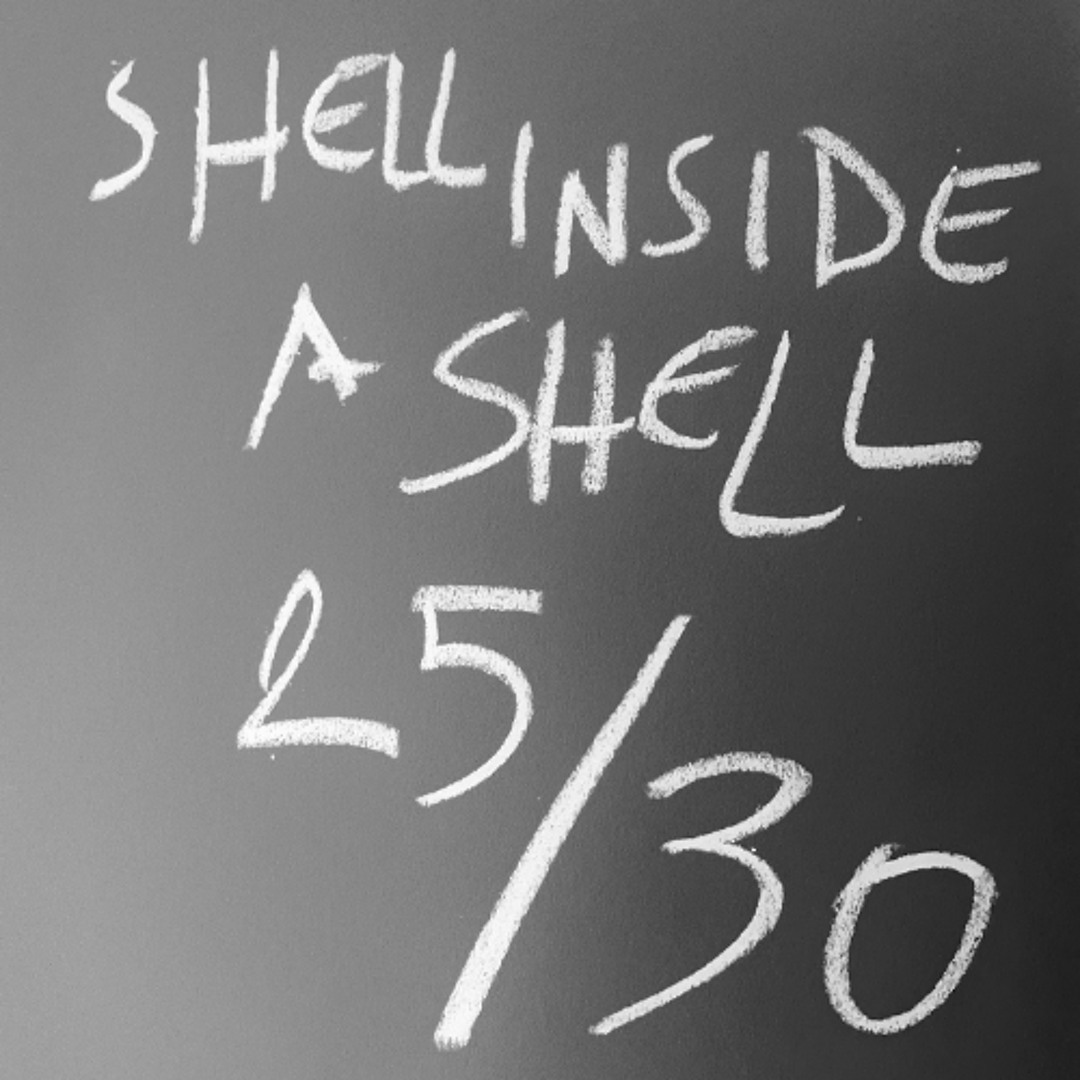 SHELL INSIDE
A SHELL
25/30